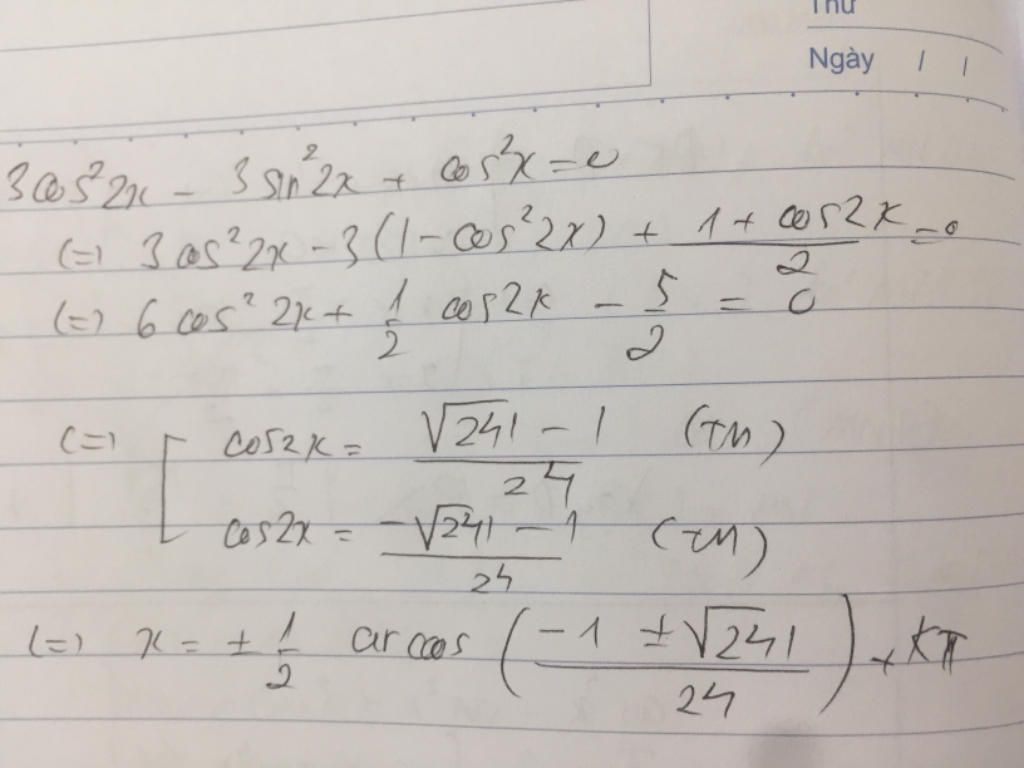 Thứ
Ngày / /
3cos²2x - 3sin²2x + cos²x = 0
(=) 3cos²2x - 3(1 - cos²2x) + \frac{1 + cos2x}{2} = 0
(=) 6cos²2x + \frac{1}{2} cos2x - \frac{5}{2} = 0
(=) [ cos2x = \frac{\sqrt{241} - 1}{24} (TM)
cos2x = \frac{-\sqrt{241} - 1}{24} (TM)
(=) x = ± \frac{1}{2} arccos (\frac{-1 ± \sqrt{241}}{24}) + kπ